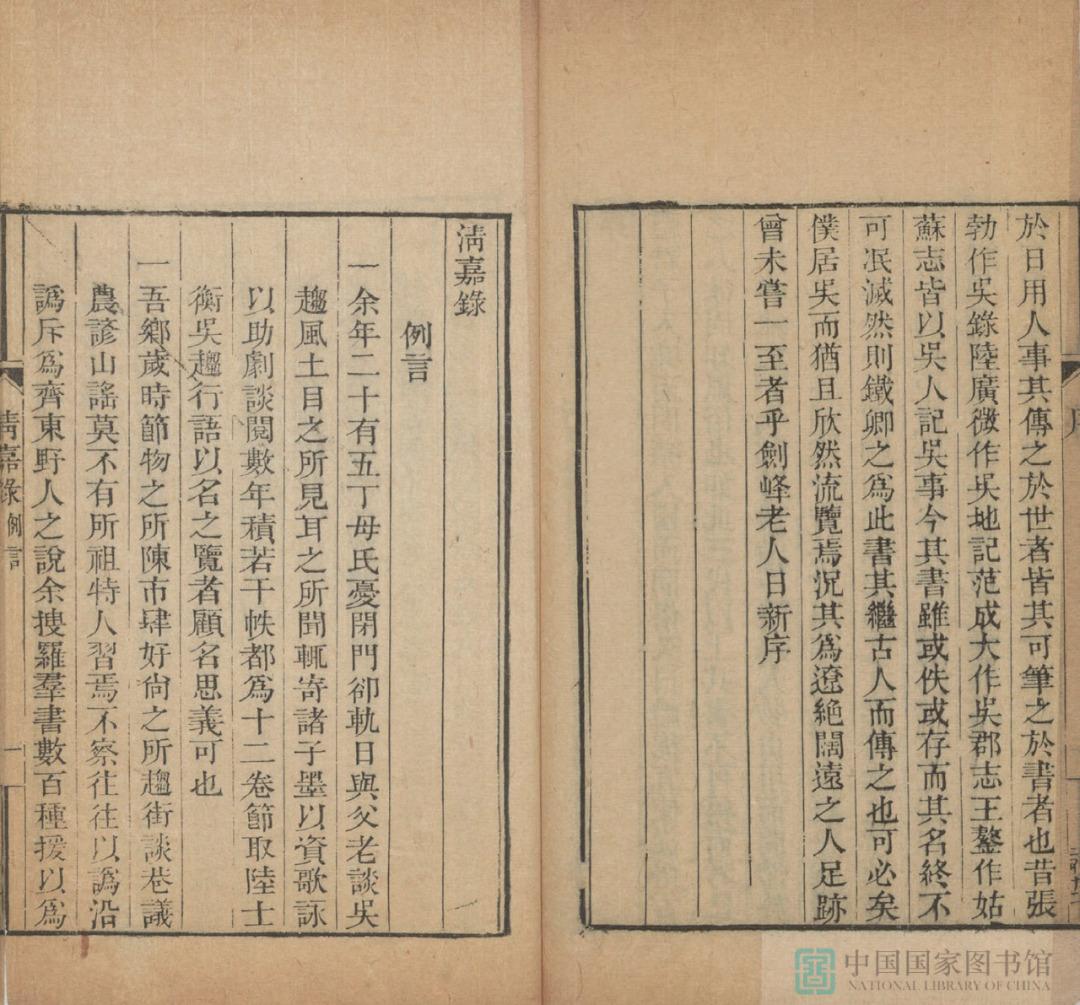 於日用人事其傳之於世者皆其可筆之於書者也昔張
勃作吳錄陸廣微作吳地記范成大作吳郡志王鏊作姑
蘇志皆以吳人記吳事今其書雖或佚或存而其名終不
可泯滅然則鐵卿之為此書其繼古人而傳之也可必矣
僕居吳而猶且欣然流覽焉況其為遼絕闊遠之人足跡
曾未嘗一至者乎劍峰老人日新序
清嘉錄
例言
一余年二十有五丁母氏憂閉門卻軌日與父老談吳
趨風土目之所見耳之所聞輒寄諸子墨以資歌詠
以助劇談閱數年積若干帙都為十二卷節取陸士
衡吳趨行語以名之覽者顧名思義可也
一吾鄉歲時節物之所陳市肆好尙之所趨街談巷議
農諺山謠莫不有所祖特人習焉不察往往以譌沿
譌斥為齊東野人之說余搜羅羣書數百種援以為
清嘉錄 例言 一
中国国家图书馆
NATIONAL LIBRARY OF CHINA